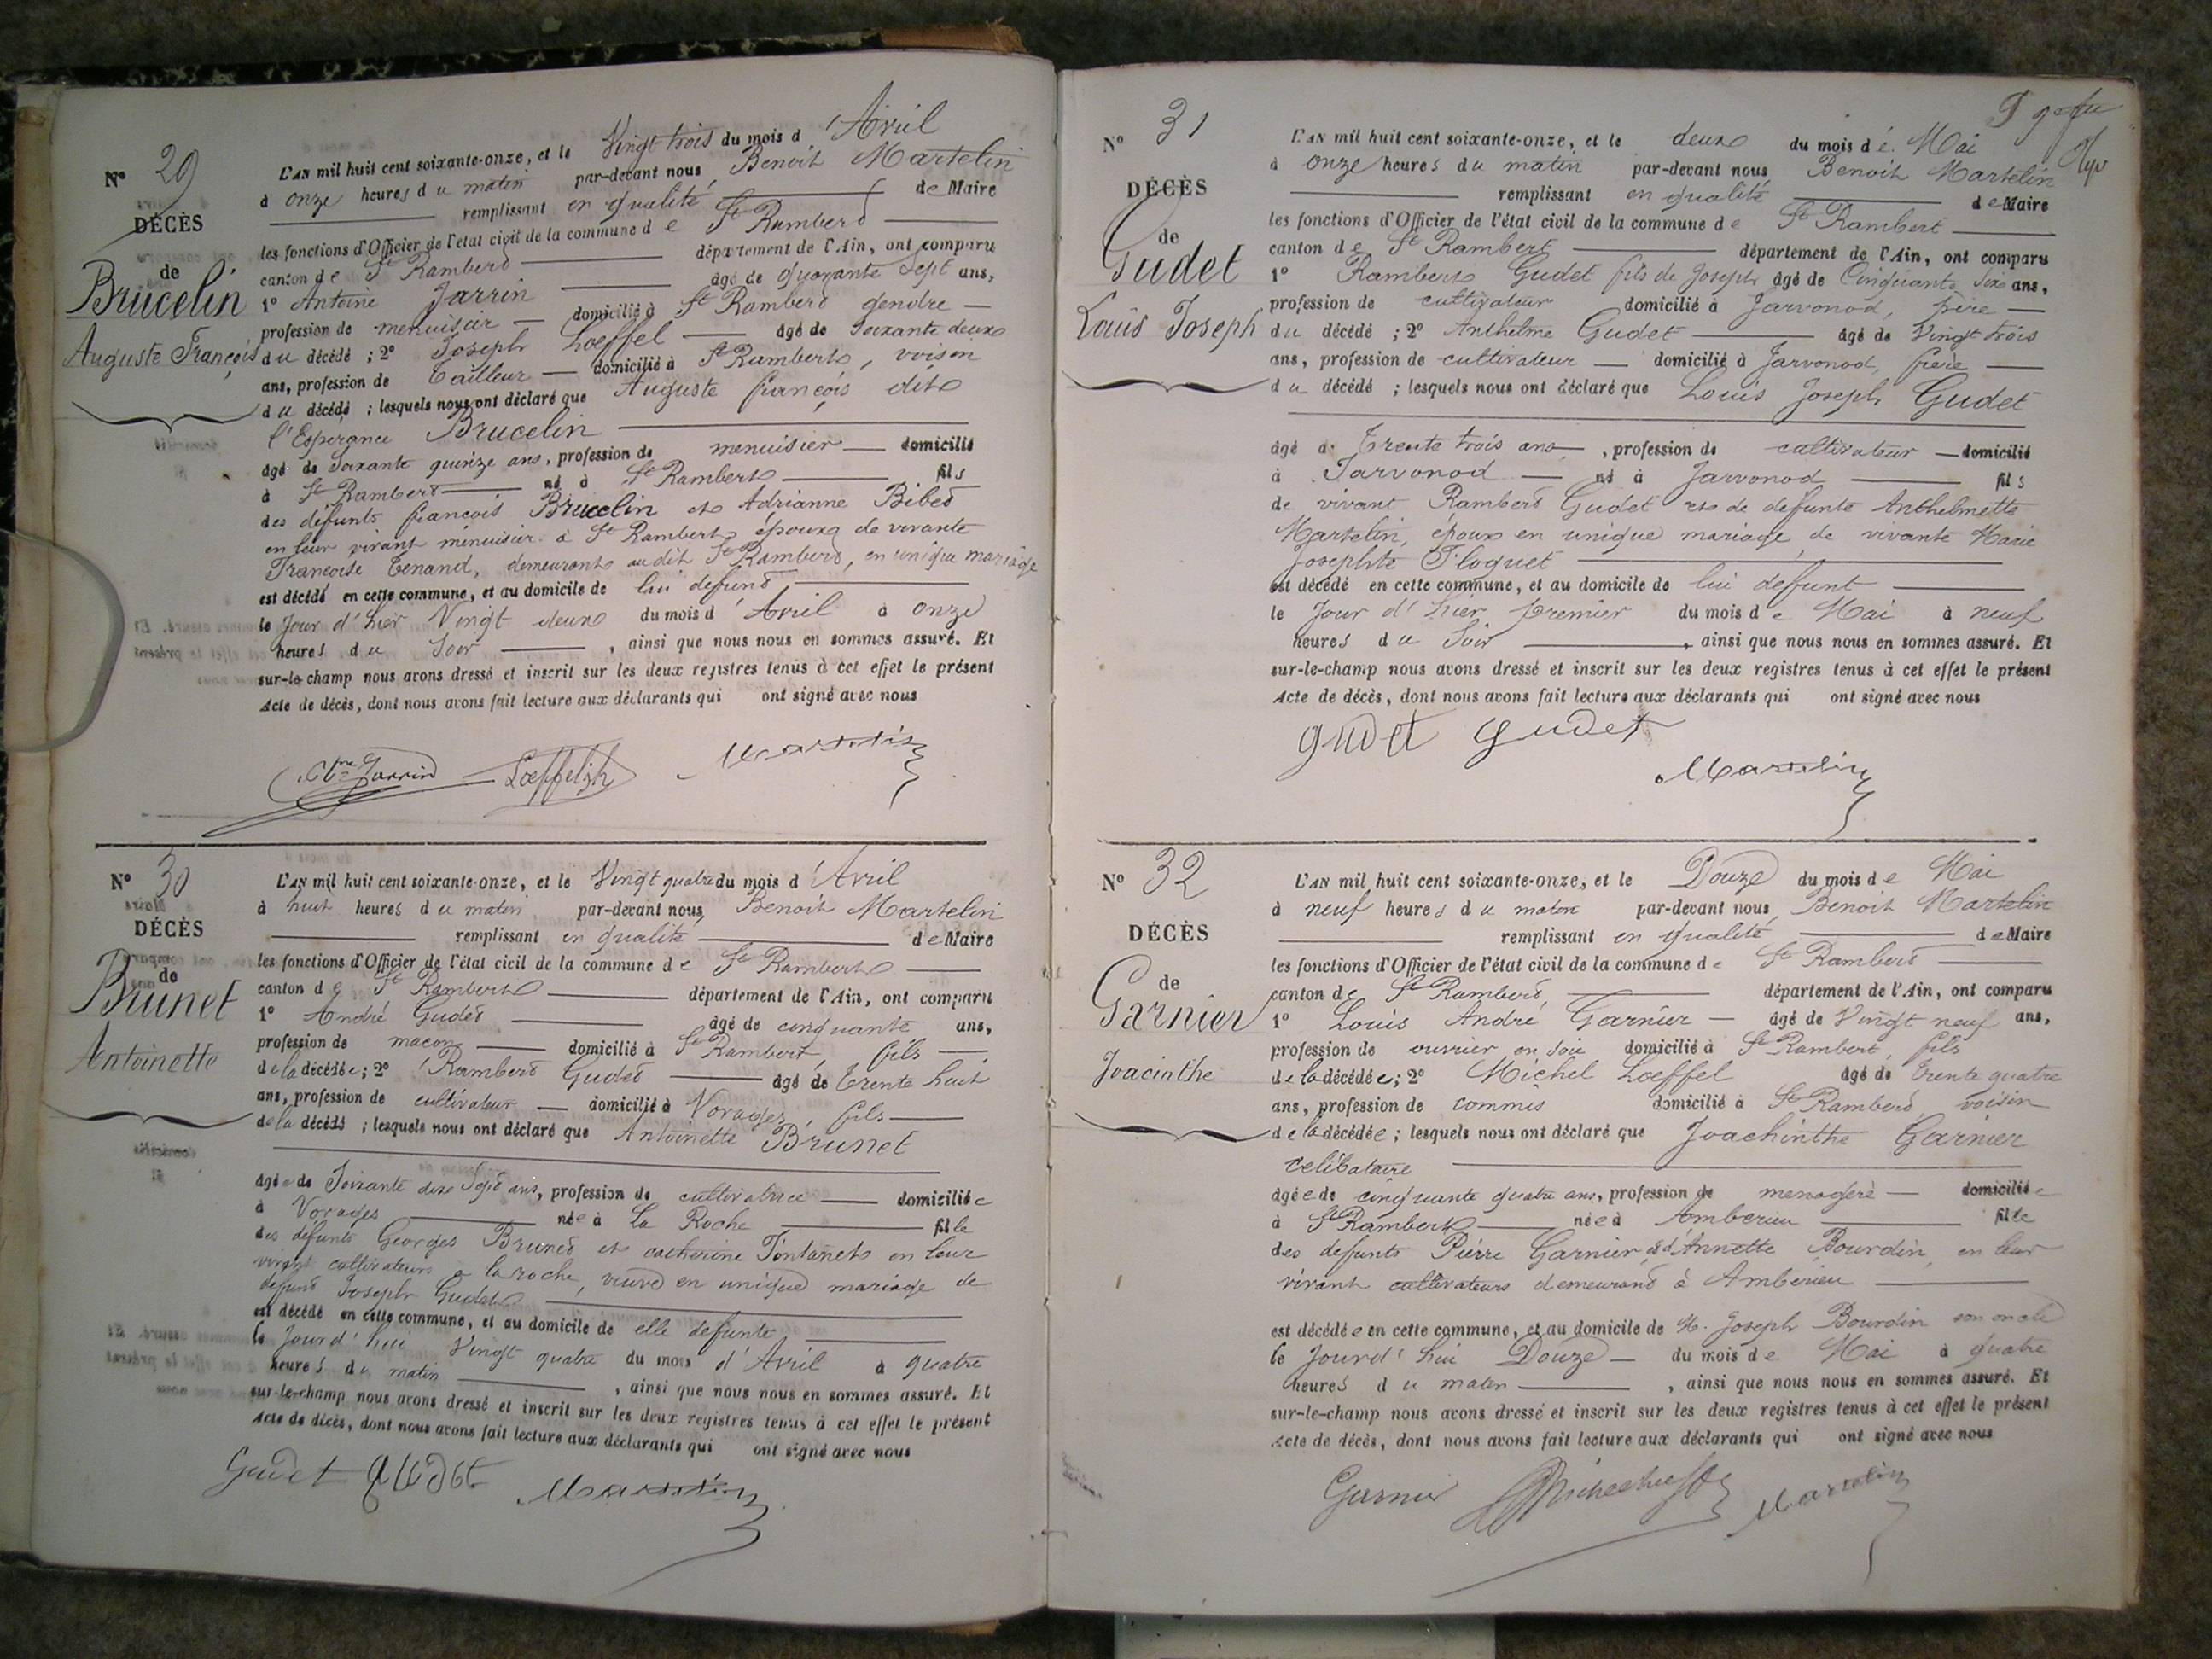 N° 29
DÉCÈS
de
Brucelin
Auguste François
L'AN mil huit cent soixante-onze, et le Vingt trois du mois d'Avril
à onze heures du matin par-devant nous Benoit Martelin
remplissant en qualité de Maire
les fonctions d'Officier de l'état civil de la commune de St Rambert
canton de St Rambert département de l'Ain, ont comparu
1° Antoine Jarrin âgé de quarante sept ans,
profession de menuisier domicilié à St Rambert gendre
du décédé ; 2° Joseph Loeffel âgé de soixante deux
ans, profession de Tailleur domicilié à St Rambert, voisin
du décédé ; lesquels nous ont déclaré que Auguste françois dit
l'Esperance Brucelin
âgé de Soixante quinze ans, profession de menuisier domicilié
à St Rambert né à St Rambert fils
des défunts françois Brucelin et Adrianne Bibet
en leur vivant menuisier à St Rambert époux de vivante
Francoise Tenand, demeurant audit St Rambert, en unique mariage
est décédé en cette commune, et au domicile de lui defunt
le Jour d'hier Vingt deux du mois d'Avril à onze
heures du Soir, ainsi que nous nous en sommes assuré. Et
sur-le-champ nous avons dressé et inscrit sur les deux registres tenus à cet effet le présent
Acte de décès, dont nous avons fait lecture aux déclarants qui ont signé avec nous
Jarrin Martelin
N° 30
DÉCÈS
de
Brunet
Antoinette
L'AN mil huit cent soixante-onze, et le Vingt quatre du mois d'Avril
à huit heures du matin par-devant nous Benoit Martelin
remplissant en qualité de Maire
les fonctions d'Officier de l'état civil de la commune de St Rambert
canton de St Rambert département de l'Ain, ont comparu
1° André Gudet âgé de cinquante ans,
profession de macon domicilié à St Rambert, fils
de la décédée ; 2° Rambert Gudet âgé de Trente huit
ans, profession de cultivateur domicilié à Vorages, fils
de la décédé ; lesquels nous ont déclaré que Antoinette Brunet
âgée de Soixante dix Sept ans, profession de cultivatrice domiciliée
à Vorages née à La Roche fille
des défunts Georges Brunet et catherine Fontanet en leur
vivant cultivateurs a la roche, veuve en unique mariage de
defunt Joseph Gudet
est décédé en cette commune, et au domicile de elle defunte
le Jourd'hui Vingt quatre du mois d'Avril à quatre
heures du matin, ainsi que nous nous en sommes assuré. Et
sur-le-champ nous avons dressé et inscrit sur les deux registres tenus à cet effet le présent
Acte de décès, dont nous avons fait lecture aux déclarants qui ont signé avec nous
Gudet Gudet Martelin
N° 31
DÉCÈS
de
Gudet
Louis Joseph
L'AN mil huit cent soixante-onze, et le deux du mois de Mai
à onze heures du matin par-devant nous Benoit Martelin
remplissant en qualité de Maire
les fonctions d'Officier de l'état civil de la commune de St Rambert
canton de St Rambert département de l'Ain, ont comparu
1° Rambert Gudet fils de Joseph âgé de Cinquante Six ans,
profession de cultivateur domicilié à Jarvonod, père
du décédé ; 2° Anthelme Gudet âgé de Vingt trois
ans, profession de cultivateur domicilié à Jarvonod, frère
du décédé ; lesquels nous ont déclaré que Louis Joseph Gudet
âgé de Trente trois ans, profession de cultivateur domicilié
à Jarvonod né à Jarvonod fils
de vivant Rambert Gudet et de defunte Anthelmette
Martelin, époux en unique mariage de vivante Marie
Josephte Floquet
est décédé en cette commune, et au domicile de lui defunt
le Jour d'hier premier du mois de Mai à neuf
heures du Soir, ainsi que nous nous en sommes assuré. Et
sur-le-champ nous avons dressé et inscrit sur les deux registres tenus à cet effet le présent
Acte de décès, dont nous avons fait lecture aux déclarants qui ont signé avec nous
gudet gudet
Martelin
N° 32
DÉCÈS
de
Garnier
Joacinthe
L'AN mil huit cent soixante-onze, et le Douze du mois de Mai
à neuf heures du matin par-devant nous Benoit Martelin
remplissant en qualité de Maire
les fonctions d'Officier de l'état civil de la commune de St Rambert
canton de St Rambert, département de l'Ain, ont comparu
1° Louis André Garnier âgé de Vingt neuf ans,
profession de ouvrier en soie domicilié à St Rambert, fils
de la décédée ; 2° Michel Loeffel âgé de trente quatre
ans, profession de commis domicilié à St Rambert, voisin
de la décédée ; lesquels nous ont déclaré que Joachinthe Garnier
celibataire
âgée de cinquante quatre ans, profession de menagère domiciliée
à St Rambert née à Amberieu fille
des defunts Pierre Garnier et d'Annette Bourdin, en leur
vivant cultivateurs demeurant à Amberieu
est décédée en cette commune, et au domicile de M. Joseph Bourdin son oncle
le Jourd'hui Douze du mois de Mai à quatre
heures du matin, ainsi que nous nous en sommes assuré. Et
sur-le-champ nous avons dressé et inscrit sur les deux registres tenus à cet effet le présent
Acte de décès, dont nous avons fait lecture aux déclarants qui ont signé avec nous
Garnier Martelin